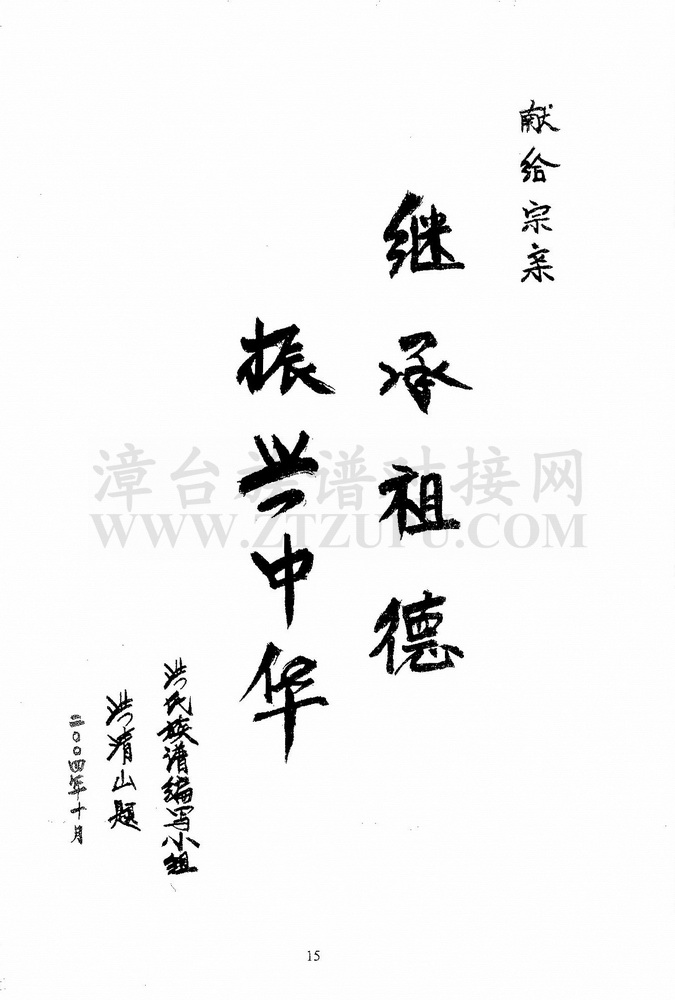 献给宗亲
继承祖德
振兴中华
洪氏族谱编写小组
洪清山题
二〇〇四年十月
漳台族谱对接网
WWW.ZTZUPU.COM
15